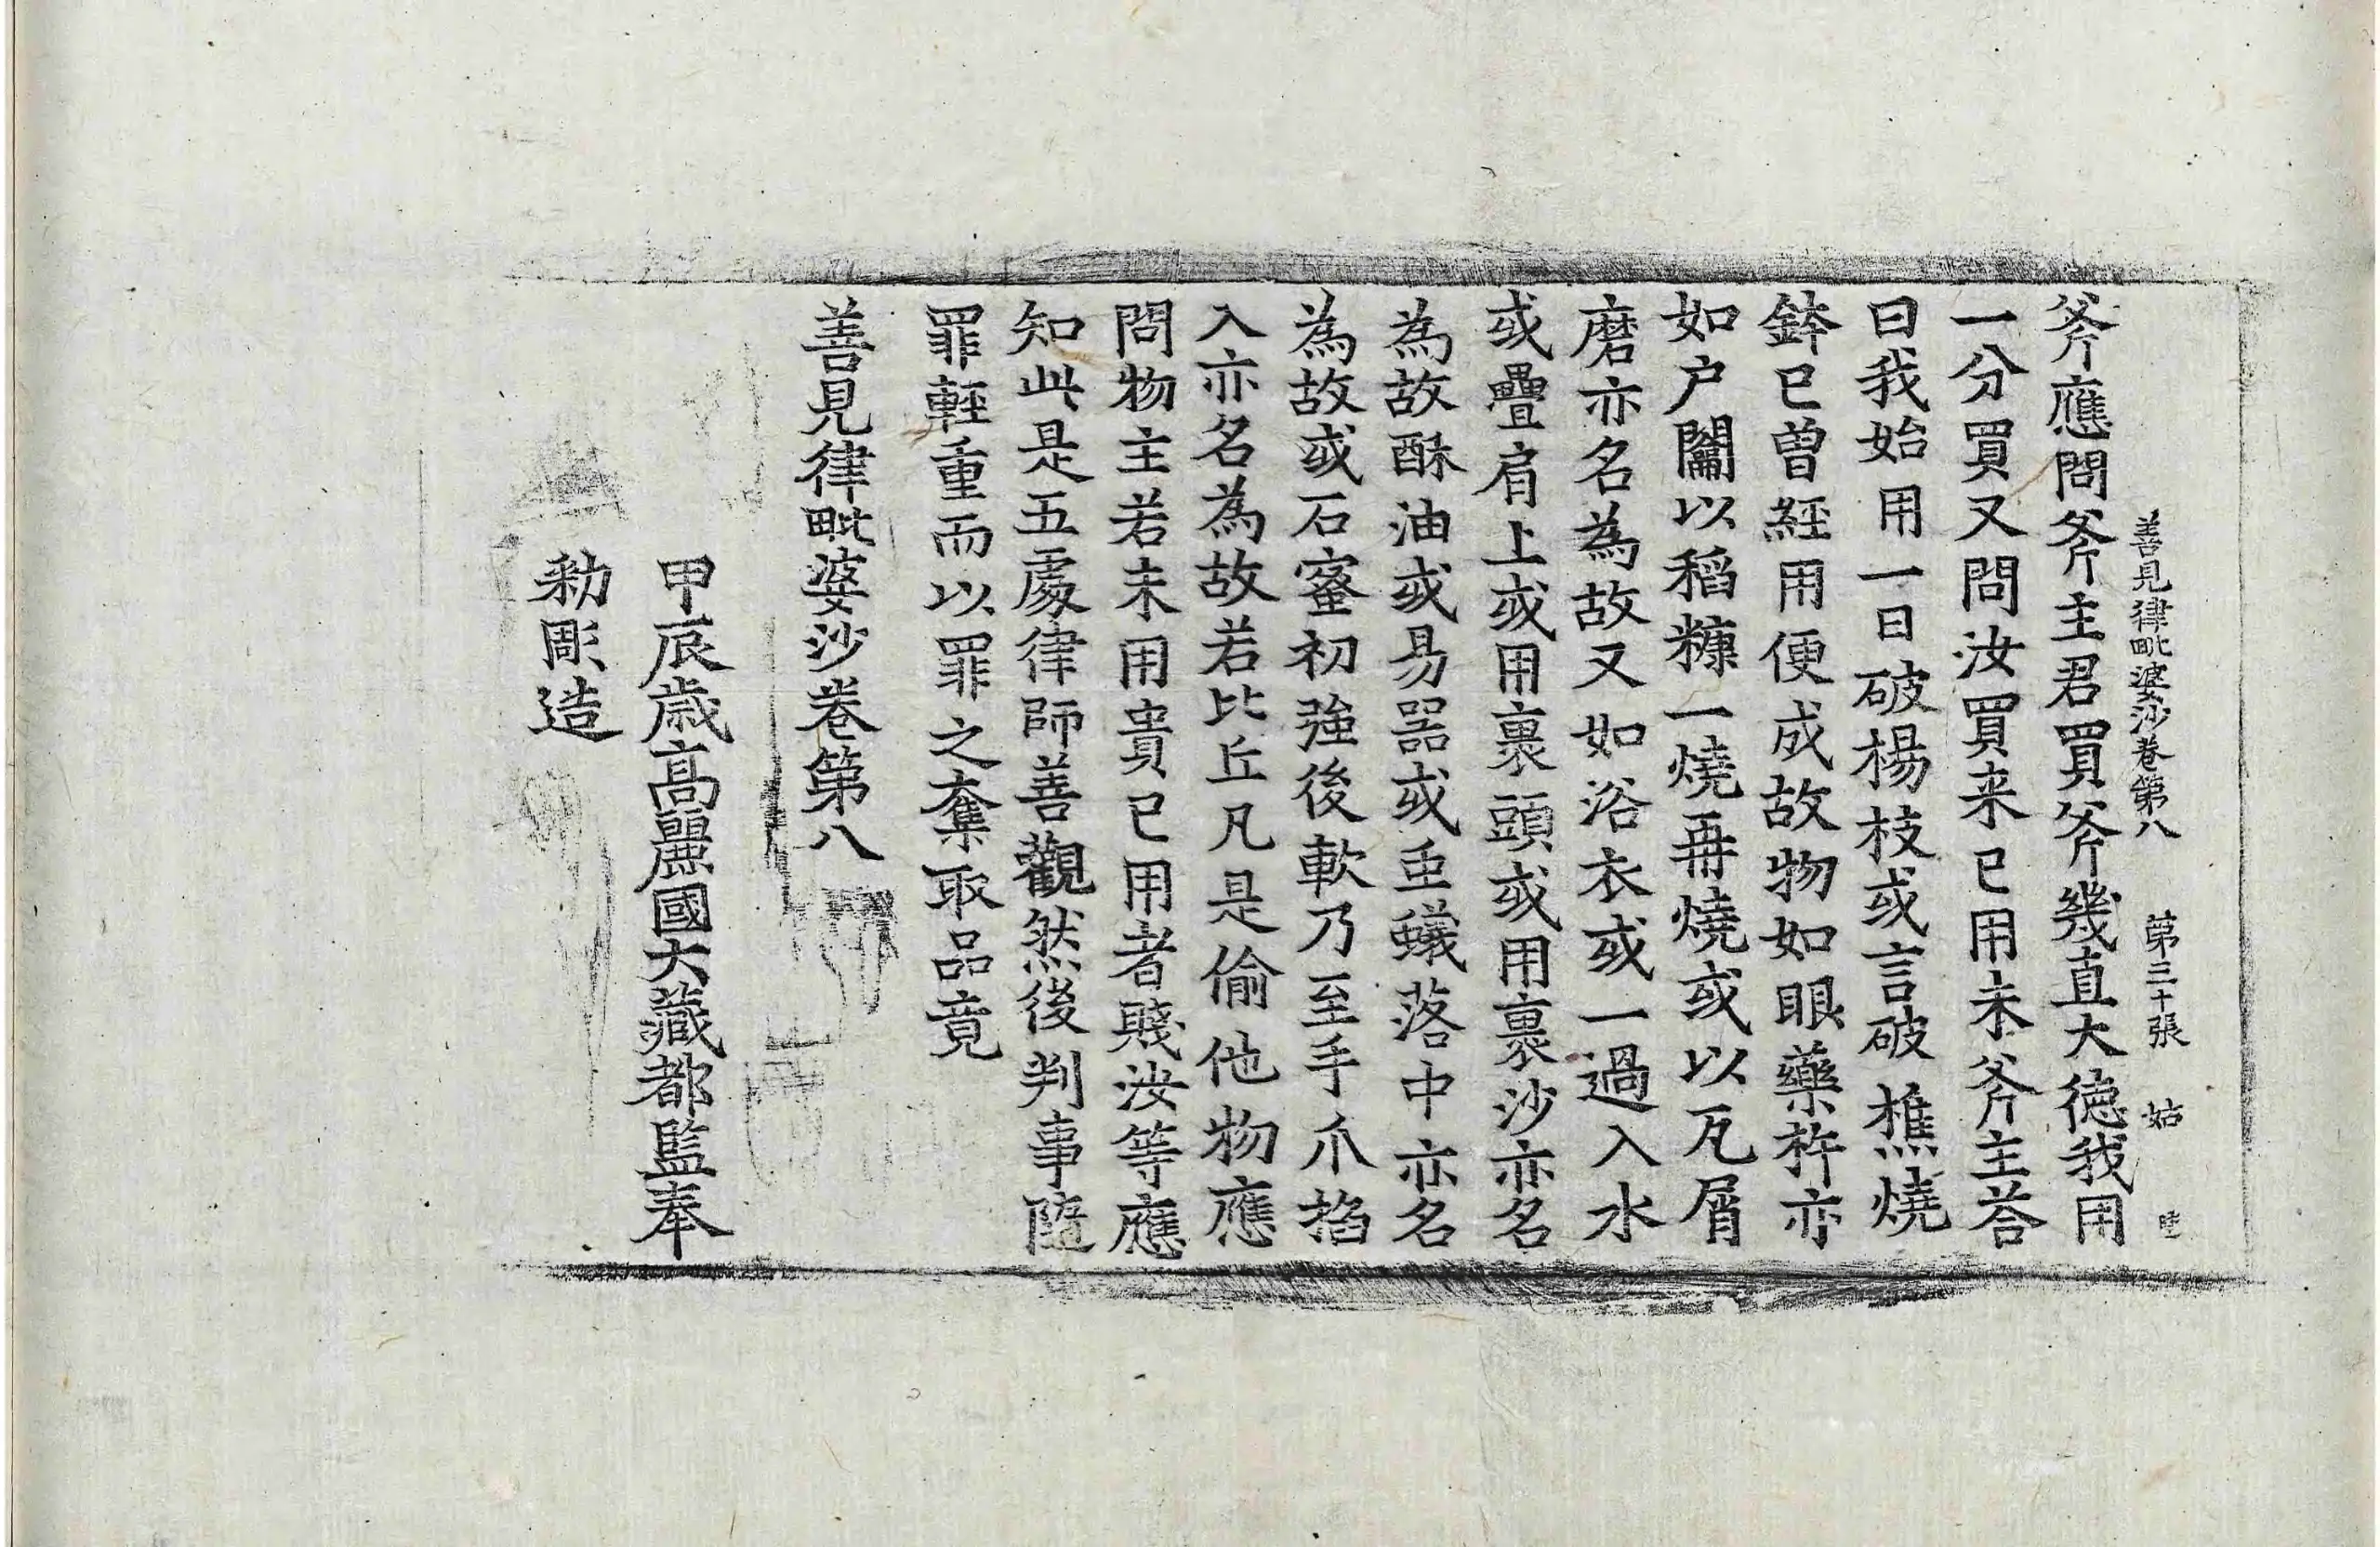 善見律毗婆沙卷第八 第三十張 姑
斧應問斧主君買斧幾直大德我用
一分買又問汝買来已用未斧主荅
曰我始用一日破楊枝或言破樵燒
鉢已曾經用便成故物如眼藥杵亦
如户闟以稻糠一燒再燒或以瓦屑
磨亦名為故又如浴衣或一過入水
或疊肩上或用裹頭或用裹沙亦名
為故酥油或易器或䖝蟻落中亦名
為故或石蜜初強後軟乃至手爪掐
入亦名為故若比丘凡是偷他物應
問物主若未用貴已用者賤汝等應
知此是五處律師善觀然後判事隨
罪輕重而以罪之奪取品竟
善見律毗婆沙卷第八
甲辰歳高麗國大藏都監奉
勑彫造